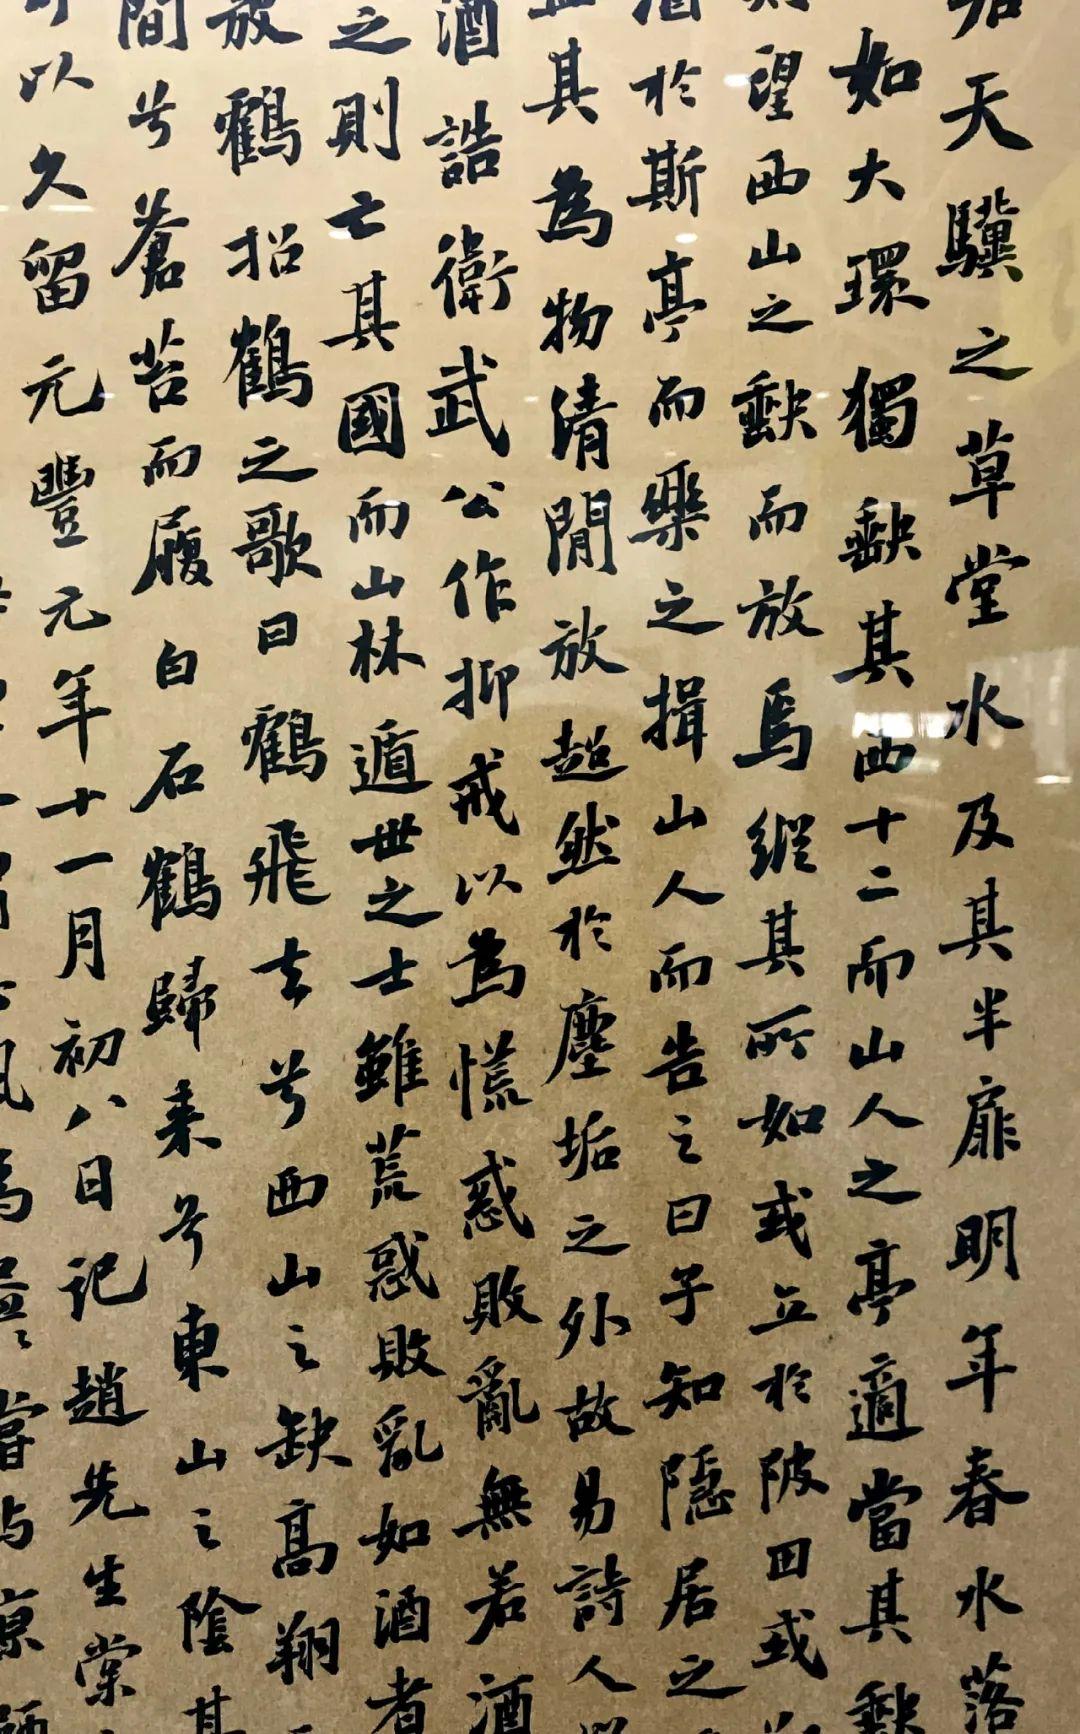 天驥之草堂水及其半扉明年春水落
如大環獨缺其西十二而山人之亭適當其缺
望西山之缺而放焉縱其所如或立於陂田或
於斯亭而樂之揖山人而告之曰子知隱居之
其為物清閒放超然於塵垢之外故易詩人
酒誥衛武公作抑戒以為慌惑敗亂無若酒
之則亡其國而山林遁世之士雖荒惑敗亂如酒者
放鶴招鶴之歌曰鶴飛去兮西山之缺高翔
間兮蒼苔而履白石鶴歸来兮東山之陰其
以久留元豐元年十一月初八日記趙先生棠